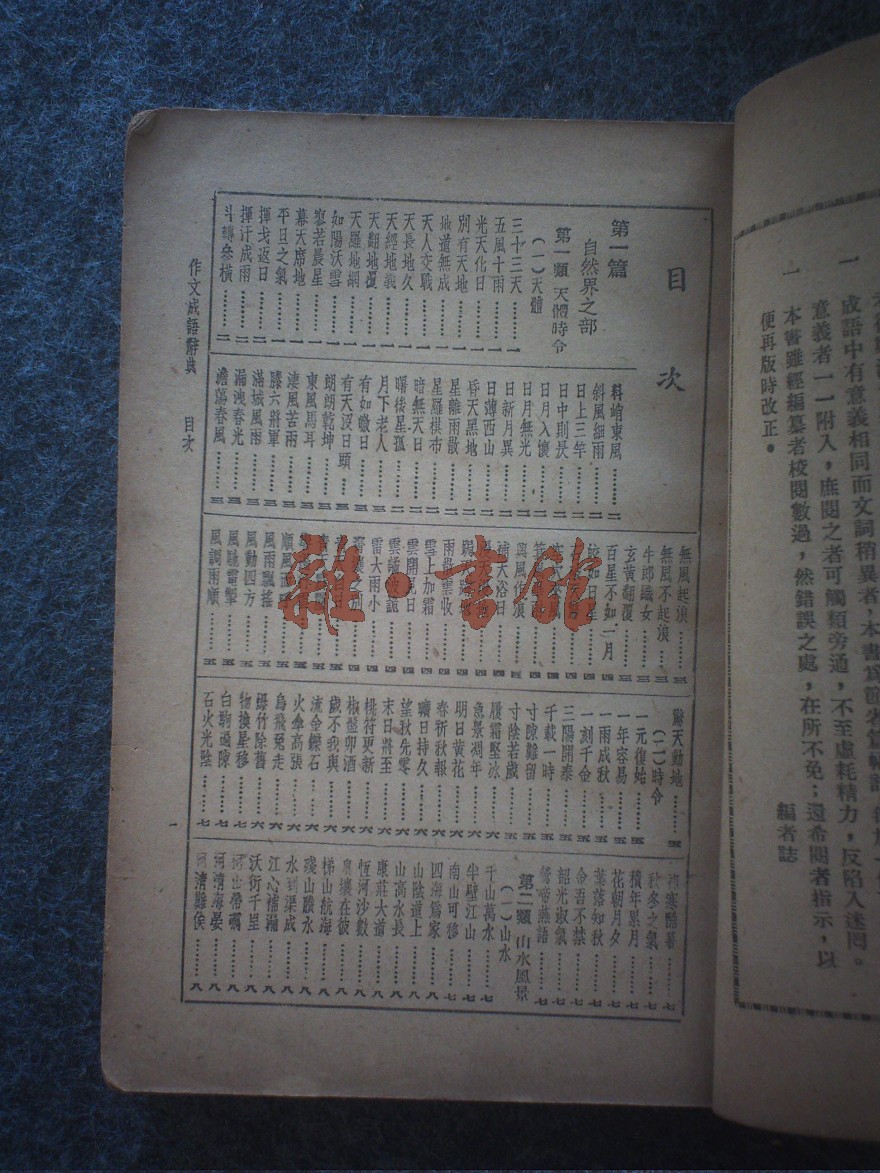 便再版時改正。
本書雖經編纂者校閱數過，然錯誤之處，在所不免；還希閱者指示，以
一
意義者一一附入，庶閱之者可觸類旁通，不至虛耗精力，反陷入迷罔。
成語中有意義相同而文詞稍異者，本書爲節省篇幅計
一
編者誌
目次
第一篇
自然界之部
第一類 天體時令
(一)天體
三十三天………一
五風十雨………一
光天化日………一
別有天地………一
地道無成………一
天人交戰………一
天長地久………一
天經地義………一
天翻地覆………一
天羅地網………一
如陽沃雪………一
寥若晨星………一
幕天席地………一
平旦之氣………一
揮戈返日………二
揮汗成雨………二
斗轉參橫………二
料峭東風………二
斜風細雨………二
日上三竿………二
日中則昃………二
日月入懷………二
日月無光………二
日新月異………二
日薄西山………二
昏天黑地………二
星離雨散………二
星羅棋布………二
暗無天日………二
曙後星孤………二
月下老人………三
有如皦日………三
有天沒日頭………三
朗朗乾坤………三
東風馬耳………三
淒風苦雨………三
滕六將軍………三
滿城風雨………三
漏洩春光………三
澹蕩春風………三
無風起浪………三
無風不起浪………三
牛郎織女………三
玄黃翻覆………三
百星不如一月………三
皎如日星
興風作浪
補天浴日
雨散雲收
雪上加霜
雲開見日
雷大雨小
霄壤之別
順風
風雨飄搖………五
風動四方………五
風馳電掣………五
風調雨順………五
驚天動地………五
(二)時令
一元復始………五
一年容易………五
一雨成秋………五
一刻千金………五
三陽開泰………五
千載一時………五
寸隙難留………五
寸陰若歲………六
履霜堅冰………六
急景凋年………六
明日黃花………六
春祈秋報………六
曠日持久………六
望秋先零………六
末日將至………六
桃符更新………六
椒盤卯酒………六
歲不我與………六
流金鑠石………六
火傘高張………六
烏飛兔走………六
爆竹除舊………六
物換星移………七
白駒過隙………七
石火光陰………七
祁寒酷暑………七
秋冬之氣………七
積年累月………七
花朝月夕………七
葉落知秋………七
金吾不禁………七
韶光淑氣………七
鶯啼燕語………七
第二類 山水風景
(一)山水
千山萬水………七
半壁江山………七
南山可移………七
四海爲家………八
山陰道上………八
山高水長………八
康莊大道………八
恆河沙數………八
奧壤在彼………八
梯山航海………八
殘山賸水………八
水到渠成………八
江心補漏………八
沃衍千里………八
河山帶礪………八
河清海晏………八
河清難俟………八
作文成語辭典 目次
一
雜·書館